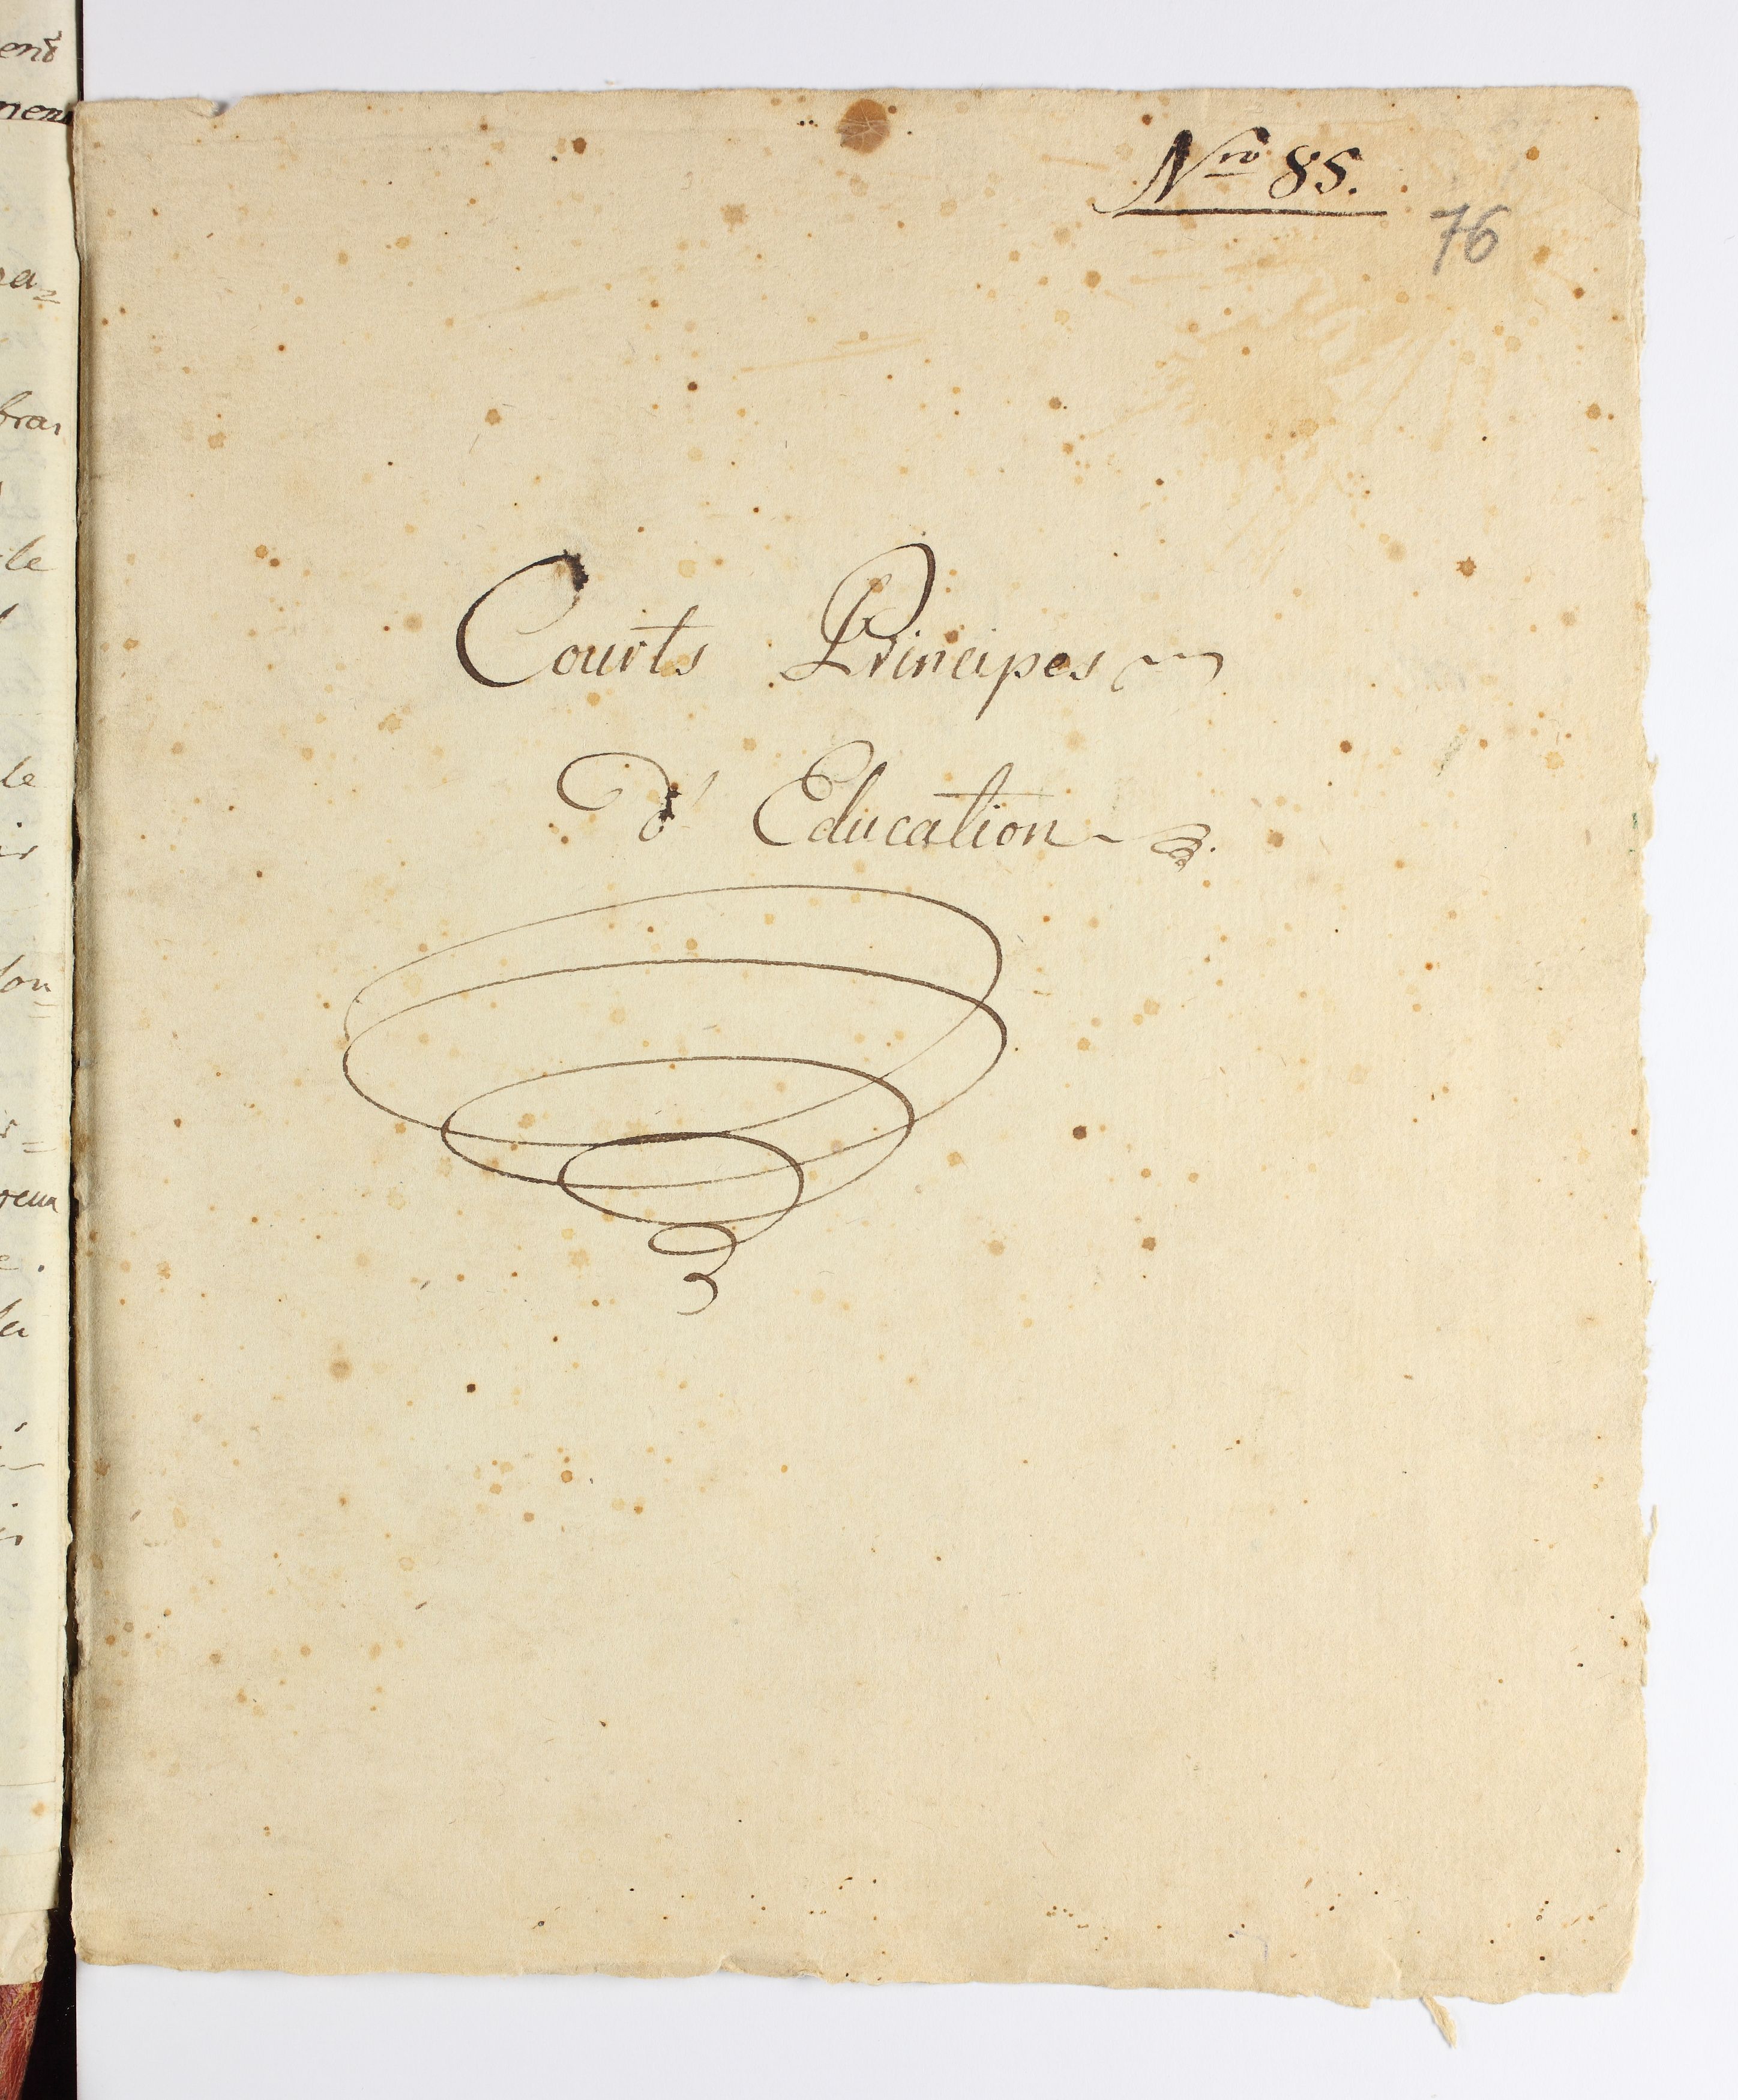 Nro 85.
76
Courts Principes
d'Education.